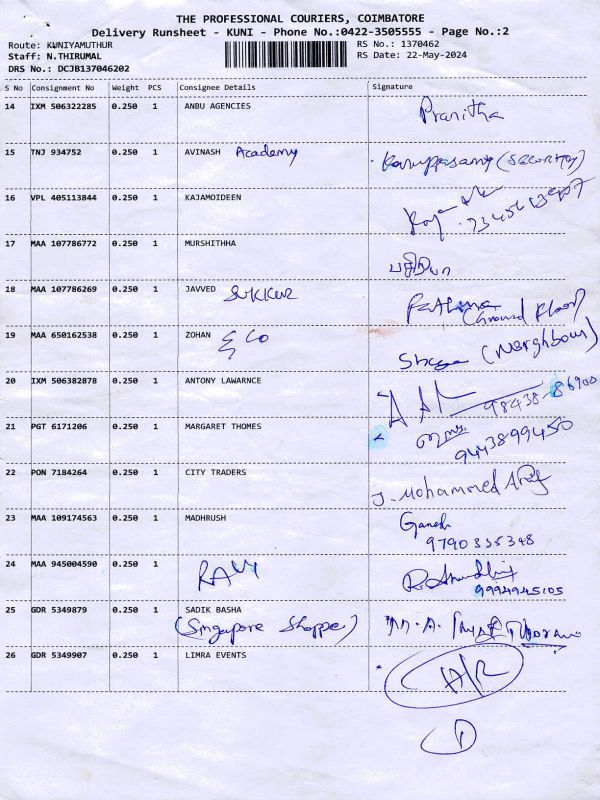 THE PROFESSIONAL COURIERS, COIMBATORE
Delivery Runsheet - KUNI - Phone No.:0422-3505555 - Page No.:2
Route: KUNIYAMUTHUR RS No.: 1370462
Staff: N.THIRUMAL RS Date: 22-May-2024
DRS No.: DCJB137046202
S No Consignment No Weight PCS Consignee Details Signature
14 IXM 506322285 0.250 1 ANBU AGENCIES Pranitha
15 TNJ 934752 0.250 1 AVINASH Academy Karuppasamy (SECURITY)
16 VPL 405113844 0.250 1 KAJAMOIDEEN
17 MAA 107786772 0.250 1 MURSHITHHA
18 MAA 107786269 0.250 1 JAVVED SUKKUR Fathima
(Ground Floor)
19 MAA 650162538 0.250 1 ZOHAN & CO (Neighbour)
20 IXM 506382878 0.250 1 ANTONY LAWARNCE 98438-86900
21 PGT 6171206 0.250 1 MARGARET THOMES
9443899450
22 PON 7184264 0.250 1 CITY TRADERS J. Mohammed Arif
23 MAA 109174563 0.250 1 MADHRUSH Ganesh
9790335348
24 MAA 945004590 0.250 1 RAVI
9994945105
25 GDR 5349879 0.250 1 SADIK BASHA
(Singapore Shoppe)
26 GDR 5349907 0.250 1 LIMRA EVENTS